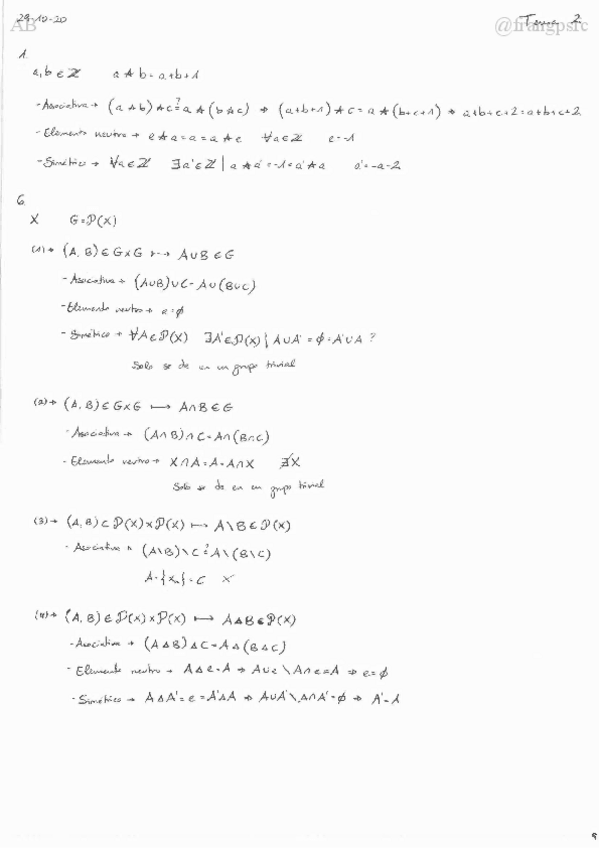 29-10-20 Tema 2
AB @frangpsrc
1.
a,b ∈ ℤ a ★ b = a+b+1
- Asociativa → (a ★ b) ★ c ?= a ★ (b ★ c) ⇒ (a+b+1) ★ c = a ★ (b+c+1) ⇒ a+b+c+2 = a+b+c+2
- Elemento neutro → e ★ a = a = a ★ e ∀a ∈ ℤ e = -1
- Simétrico → ∀a ∈ ℤ ∃a' ∈ ℤ | a ★ a' = -1 = a' ★ a a' = -a-2
6.
X G = P(X)
(1) → (A, B) ∈ G×G ↦ A∪B ∈ G
- Asociativa → (A∪B)∪C = A∪(B∪C)
- Elemento neutro → e = ∅
- Simétrico → ∀A ∈ P(X) ∃A' ∈ P(X) | A∪A' = ∅ = A'∪A ?
Solo se da en un grupo trivial
(2) → (A, B) ∈ G×G ↦ A∩B ∈ G
- Asociativa → (A∩B)∩C = A∩(B∩C)
- Elemento neutro → X∩A = A = A∩X ∄X
Solo se da en un grupo trivial
(3) → (A, B) ⊂ P(X)×P(X) ↦ A\B ∈ P(X)
- Asociativa → (A\B)\C ?= A\(B\C)
A = {x₀} = C X
(4) → (A, B) ∈ P(X)×P(X) ↦ A△B ∈ P(X)
- Asociativa → (A△B)△C = A△(B△C)
- Elemento neutro → A△e = A ⇒ A∪e \ A∩e = A ⇒ e = ∅
- Simétrico → A△A' = e = A'△A ⇒ A∪A' \ A∩A' = ∅ ⇒ A' = A